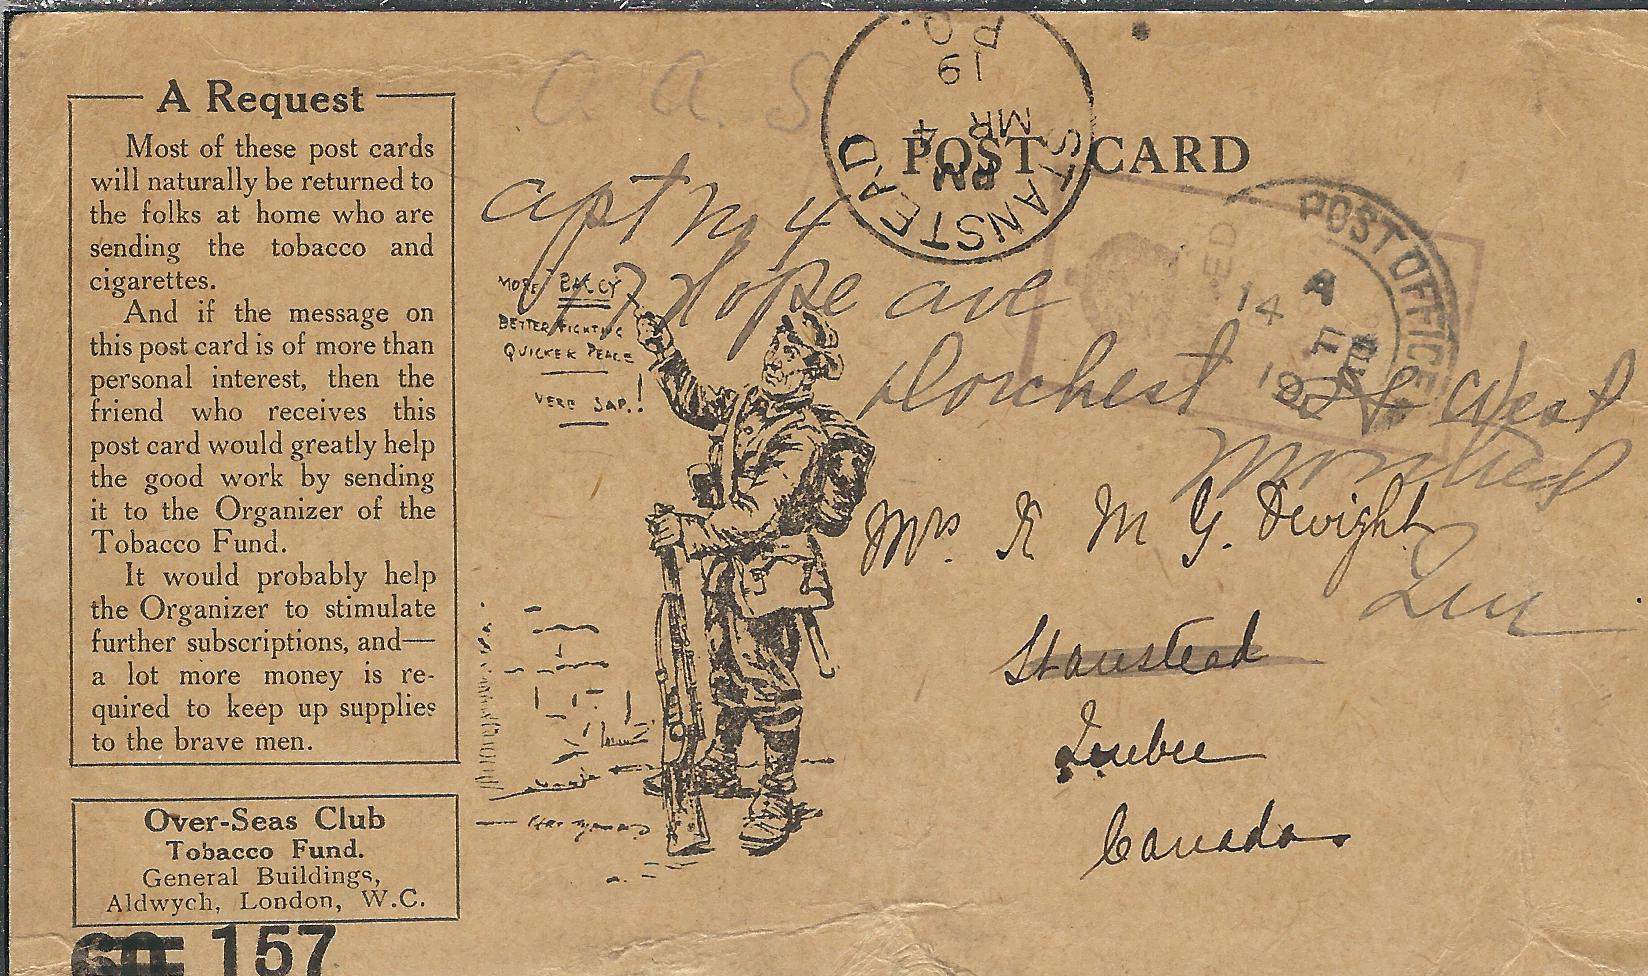 A Request
Most of these post cards
will naturally be returned to
the folks at home who are
sending the tobacco and
cigarettes.
And if the message on
this post card is of more than
personal interest, then the
friend who receives this
post card would greatly help
the good work by sending
it to the Organizer of the
Tobacco Fund.
It would probably help
the Organizer to stimulate
further subscriptions, and—
a lot more money is re-
quired to keep up supplies
to the brave men.
Over-Seas Club
Tobacco Fund.
General Buildings,
Aldwych, London, W.C.
60 157
O. A. S
POST CARD
STANSTEAD
PM
MR 4
19
P.Q.
POST OFFICE
A
14 F
apt No 4
Hope ave
Dorchest St West
Montreal
Que
MORE BACCY
BETTER FIGHTING
QUICKER PEACE
VERB SAP.!
Mrs. K M G. Dwight
Stanstead
Quebec
Canada.